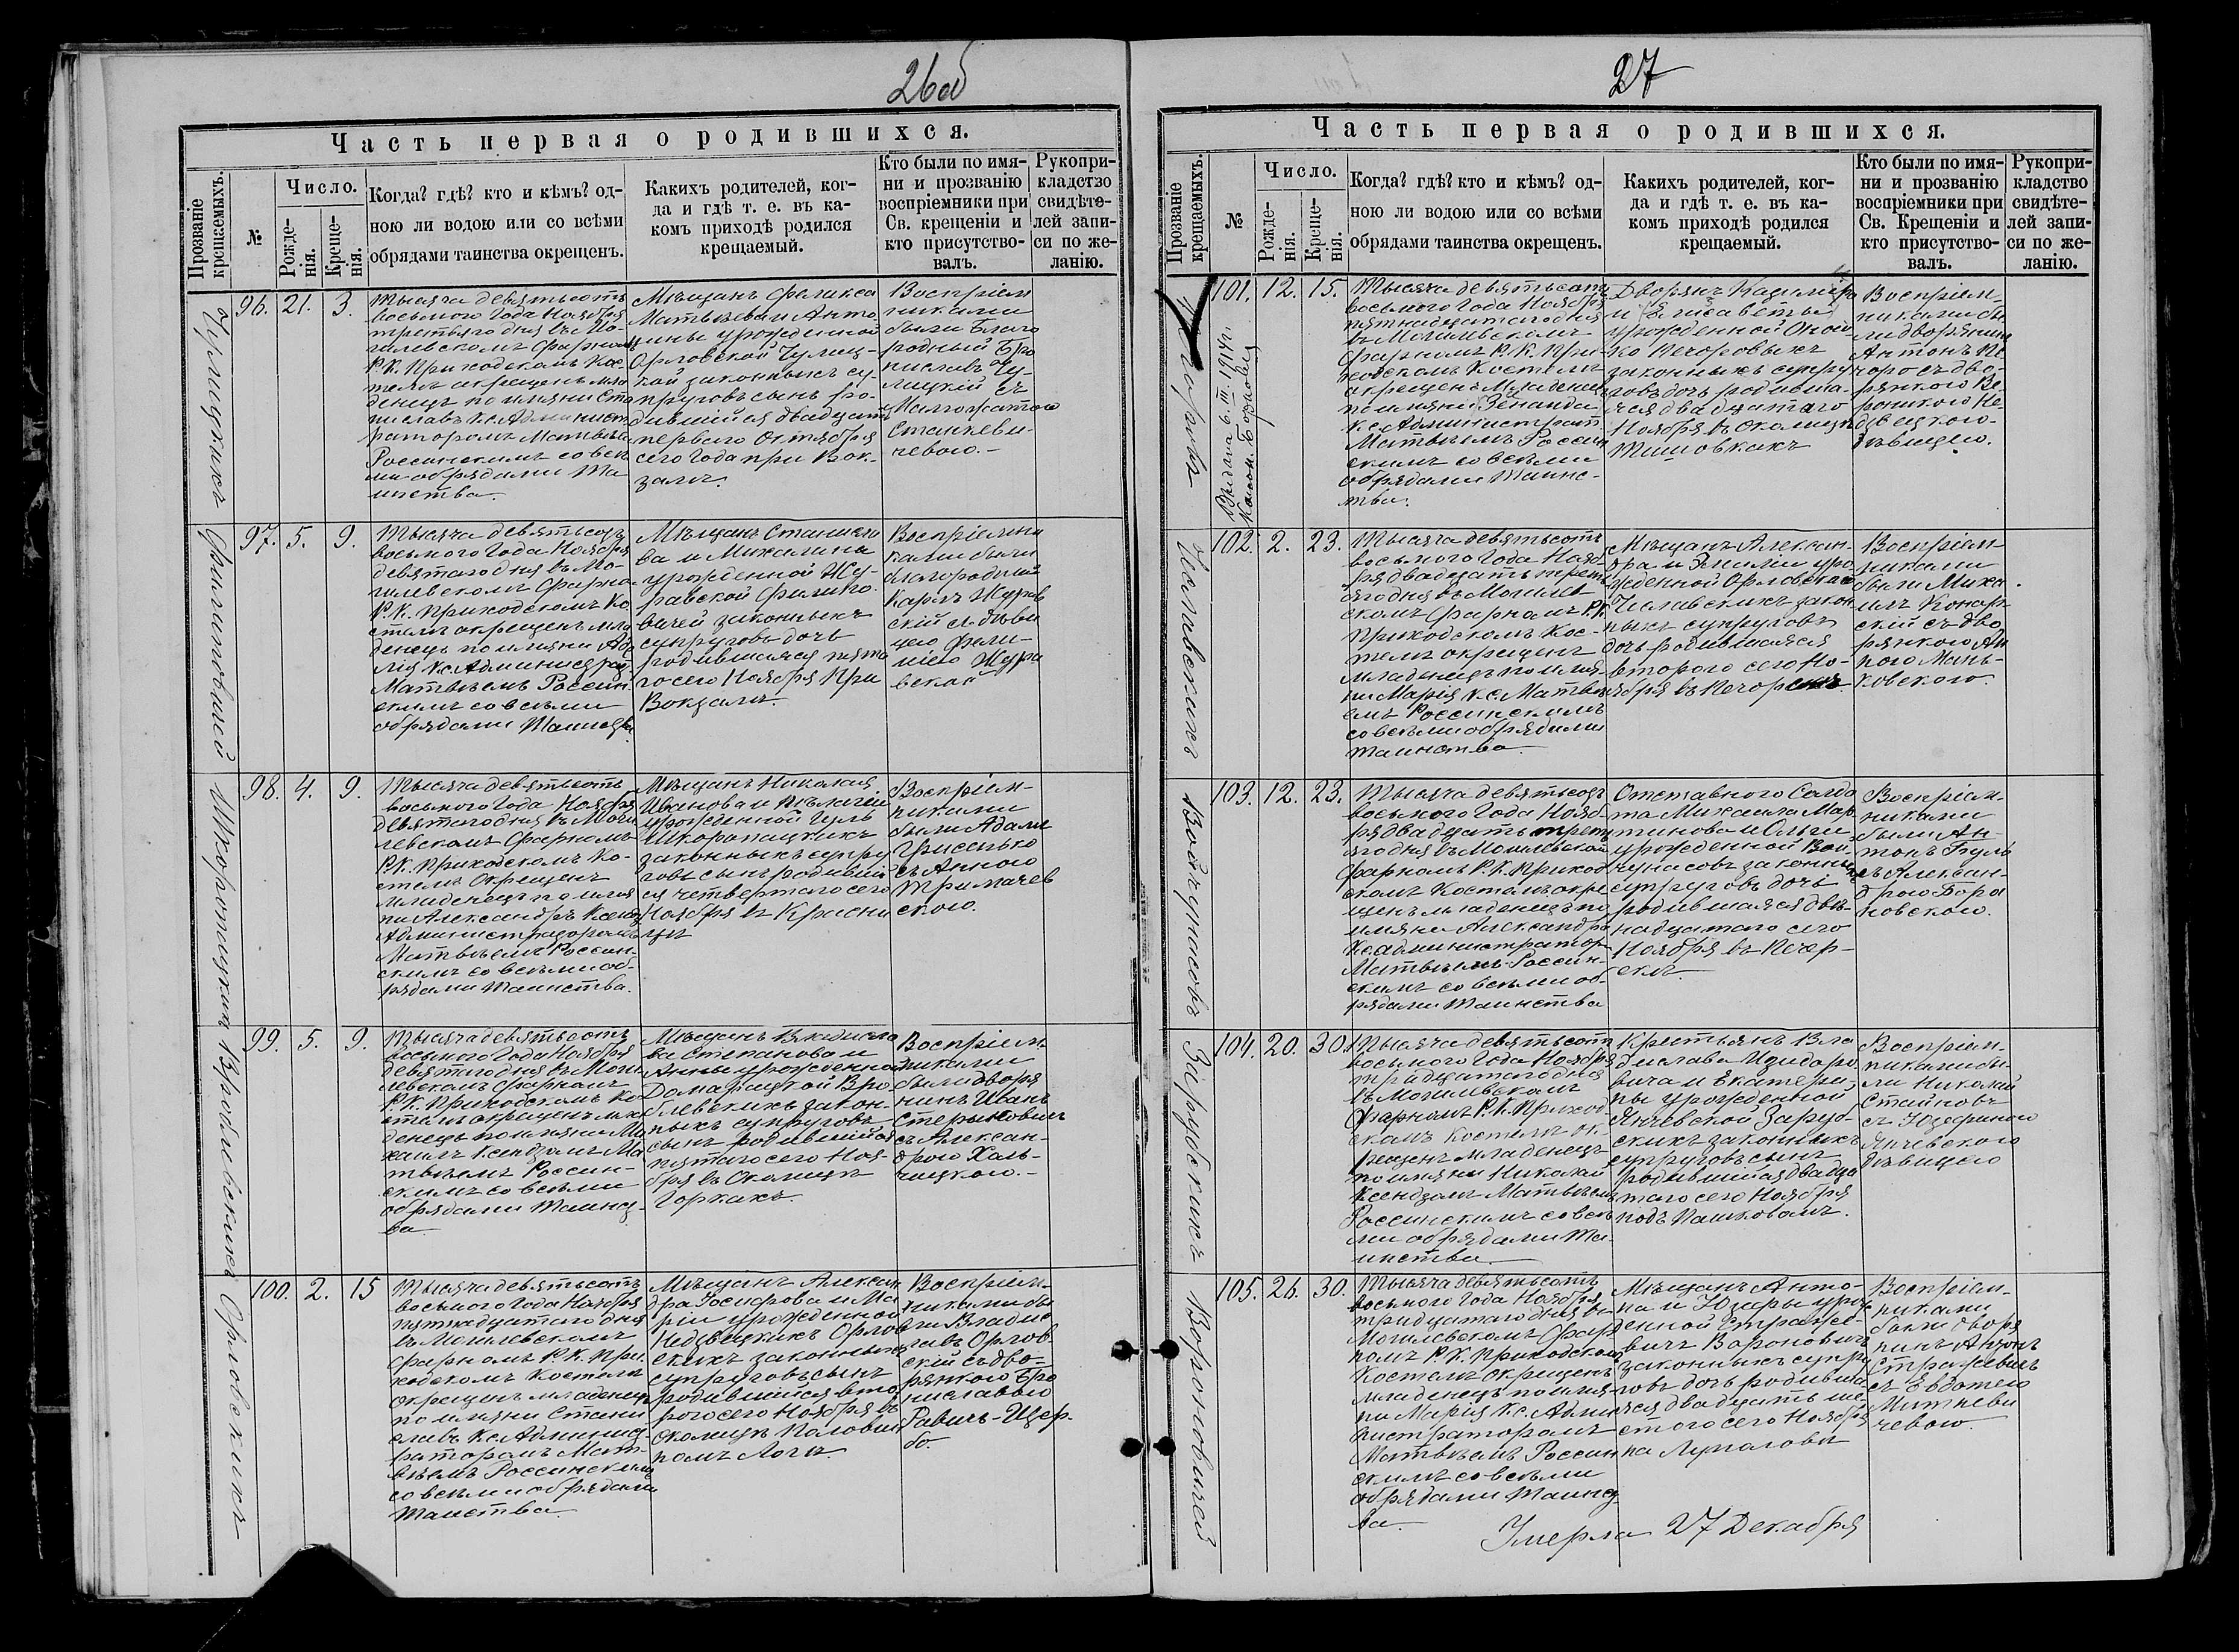 26об
Часть первая о родившихся.
Прозваніе крещаемыхъ.
№
Число.
Рожденія.
Крещенія.
Когда? гдѣ? кто и кѣмъ? од-
ною ли водою или со всѣми
обрядами таинства окрещенъ.
Какихъ родителей, ког-
да и гдѣ т. е. въ ка-
комъ приходѣ родился
крещаемый.
Кто были по имя-
ни и прозванію
воспріемники при
Св. крещеніи и
кто присутство-
валъ.
Рукопри-
кладство
свидѣте-
лей запи-
си по же-
ланію.
Чулицкихъ
96. 21. 3.
Тысяча девятьсотъ
восьмого Года Ноября
третьяго дня въ Мо-
гилевскомъ Фарномъ
Р.К. Приходскомъ Кос-
телѣ окрещенъ мла
денецъ по имяни Ста
ниславъ Кс. Админист
раторомъ Матвѣемъ
Россинскимъ со всѣ
ми обрядами Та
инства.
Мѣщанъ Феликса
Матвѣева и Анто
нины урожденной
Орловской Чулиц-
кой законныхъ су-
пруговъ сынъ ро-
дившійся двадцать
перваго Октября
сего Года при Вок-
залѣ.
Воспріем
никами
были Благо
родный Бро
ниславъ Чу-
лицкій съ
Малгоратою
Станкеви-
чевою.-
Филиповичей
97. 5. 9.
Тысяча девятьсотъ
восьмого Года Ноября
девятаго дня въ Мо-
гилевскомъ Фарно
Р.К. Приходскомъ Ко
стелѣ окрещенъ мла
денецъ по имяни
Кс. Администрат
Матвѣемъ Россин
скимъ со всѣми
обрядами Таинства
Мѣщанъ Станисла
ва и Михалины
урожденной Жу-
равской Филипо-
вичей законныхъ
супруговъ дочь
родившаяся пята
го сего Ноября при
Вокзалѣ.
Воспріемни
ками были
благородный
Карлъ Журав
скій съ дѣви
цею Фели-
ціею Жура
вскою
Шкоропацкихъ
98. 4. 9.
Тысяча девятьсотъ
восьмого Года Ноября
девятаго дня въ Моги
левскомъ Фарномъ
Р.К. Приходскомъ Ко-
стелѣ Окрещенъ
младенецъ по имя
ни Александръ Ксендз
Администраторомъ
Матвѣемъ Россин-
скимъ со всѣми об-
рядами Таинства.
Мѣщанъ Николая
Иванова и Пелагеи
урожденной Гуль
Шкоропацкихъ
законныхъ супру
говъ сынъ родивші
ся четвертаго сего
Ноября въ Красни
цѣ
Воспріем-
никами
были Адамъ
Грисенько
съ Анною
Тримачев
скою.
Вроблевскихъ
99. 5. 9.
Тысяча девятьсотъ
восьмого Года Ноября
девятаго дня въ Моги
левскомъ Фарномъ
Р.К. Приходскомъ Ко
стелѣ окрещенъ мла
денецъ по имяни Ми
хаилъ Ксендзомъ Ма
твѣемъ Россин-
скимъ со всѣми
обрядами Таинст-
ва
Мѣщанъ Владисла
ва Степанова и
Анны урожденной
Домарацкой Вро-
блевскихъ закон-
ныхъ супруговъ
сынъ родившійся
пятаго сего Ноя-
бря въ Околицѣ
Горкахъ.
Воспріем
никами
были дворя
нинъ Иванъ
Стерыновичъ
съ Алексан-
дрою Халь-
чицкою.-
Орловскихъ
100. 2. 15
Тысяча девятьсотъ
восьмого Года Ноября
пятнадцатаго дня
въ Могилевскомъ
Фарномъ Р.К. При-
ходскомъ Костелѣ
окрещенъ младенецъ
по имяни Стани
славъ Кс. Админист
раторомъ Мат-
вѣемъ Россинскимъ
со всѣми обрядами
Таинства.
Мѣщанъ Алексан
дра Іосифова и Ма
ріи урожденной
Недвецкихъ Орлов
скихъ законныхъ
супруговъ сынъ
родившійся вто
рого сего Ноября въ
Околицѣ Половин
номъ Логѣ.
Воспріем-
никами бы
ли Владис
лавъ Орлов
скій съ дво-
рянкою Бро
ниславою
Равичъ-Щер-
бо.
27
Часть первая о родившихся.
Прозваніе крещаемыхъ.
№
Число.
Рожденія.
Крещенія.
Когда? гдѣ? кто и кѣмъ? од-
ною ли водою или со всѣми
обрядами таинства окрещенъ.
Какихъ родителей, ког-
да и гдѣ т. е. въ ка-
комъ приходѣ родился
крещаемый.
Кто были по имя-
ни и прозванію
воспріемники при
Св. Крещеніи и
кто присутство-
валъ.
Рукопри-
кладство
свидѣте-
лей запи-
си по же-
ланію.
Выдана 6. III. 1914 г.
101. 12. 15.
Тысяча девятьсотъ
восьмого Года Ноября
пятнадцатаго дня
въ Могилевскомъ
Фарномъ Р.К. При-
ходскомъ Костелѣ
окрещенъ младенецъ
по имяни Зенаида
Кс. Администрат
Матвѣемъ Россин
скимъ со всѣми
обрядами Таинс-
тва.
Дворянъ Казиміра
и Елисаветы
урожденной Оной-
ко Печоровыхъ
законныхъ супру
говъ дочь родивша-
яся двадцатаго
Ноября въ околицѣ
Тишовкахъ
Воспріем-
никами бы
ли дворянинъ
Антонъ Пе
чоро съ дво-
рянкою Ве-
роникою Не-
двецкою
дѣвицею.
Чеславскихъ
102. 2. 23.
Тысяча девятьсотъ
восьмого Года Нояб-
ря двадцать треть
яго дня въ Могилев
скомъ Фарномъ Р.К.
Приходскомъ Кос-
телѣ окрещенъ
младенецъ по имя-
ни Марія Кс. Матвѣ
емъ Россинскимъ
со всѣми обрядами
таинства
Мѣщанъ Алексан-
дра и Эмиліи уро
жденной Орловской
Чеславскихъ закон
ныхъ супруговъ
дочь родившаяся
второго сего Но-
ября въ Печорскѣ
Воспріем-
никами
были Миха
илъ Конар
скій съ дво
рянкою Ан
ною Мань-
ковскою.
Войчунасовъ
103. 12. 23.
Тысяча девятьсотъ
восьмого Года Нояб-
ря двадцать треть
яго дня въ Могилевском
Фарномъ Р.К. Приход
скомъ Костелѣ окре
щенъ младенецъ по
имяни Александра
Кс. администратор
Матвѣемъ Россин-
скимъ со всѣми об-
рядами Таинства
Отставного Солда
та Михаила Мар
тинова и Ольги
урожденной Вой-
чунасовъ законныхъ
супруговъ дочь
родившаяся двѣ-
надцатаго сего
Ноября въ Печер-
скѣ
Воспріем-
никами
были Ан-
тонъ Буль
съ Алексан-
дрою Бара
новскою.
Зарубскихъ
104. 20. 30.
Тысяча девятьсотъ
восьмого Года Ноября
тридцатаго дня
въ Могилевскомъ
Фарномъ Р.К. Приход
скомъ Костелѣ ок
рещенъ младенецъ
по имяни Николай
Ксендзомъ Матвѣемъ
Россинскимъ со всѣ
ми обрядами Та-
инства
Крестьянъ Вла
дислава Изидоро
вича и Екатери-
ны урожденной
Янчевской Заруб-
скихъ законныхъ
супруговъ сынъ
родившійся двадца
таго сего Ноября
подъ Пашковомъ.
Воспріем-
никами бы-
ли Николай
Стаиновъ
съ Юзефиною
Янчевскою
дѣвицею
Вороновичей
105. 26. 30.
Тысяча девятьсотъ
восьмого Года Ноября
тридцатаго дня въ
Могилевскомъ Фар
номъ Р.К. Приходском
Костелѣ окрещенъ
младенецъ по имя-
ни Марія Кс. Адми
нистраторомъ
Матвѣемъ Россин
скимъ со всѣми
обрядами Таинст
ва.
Мѣщанъ Анто-
на и Юзефы урож
денной Страже-
вичъ Вороновичъ
законныхъ супру
говъ дочь родивша
яся двадцать ше
стого сего Ноября
на Луполовѣ
Воспріем-
никами
были дворя
нинъ Антонъ
Стражевичъ
съ Евдотею
Миткеви
чевою.
Умерла 27 Декабря